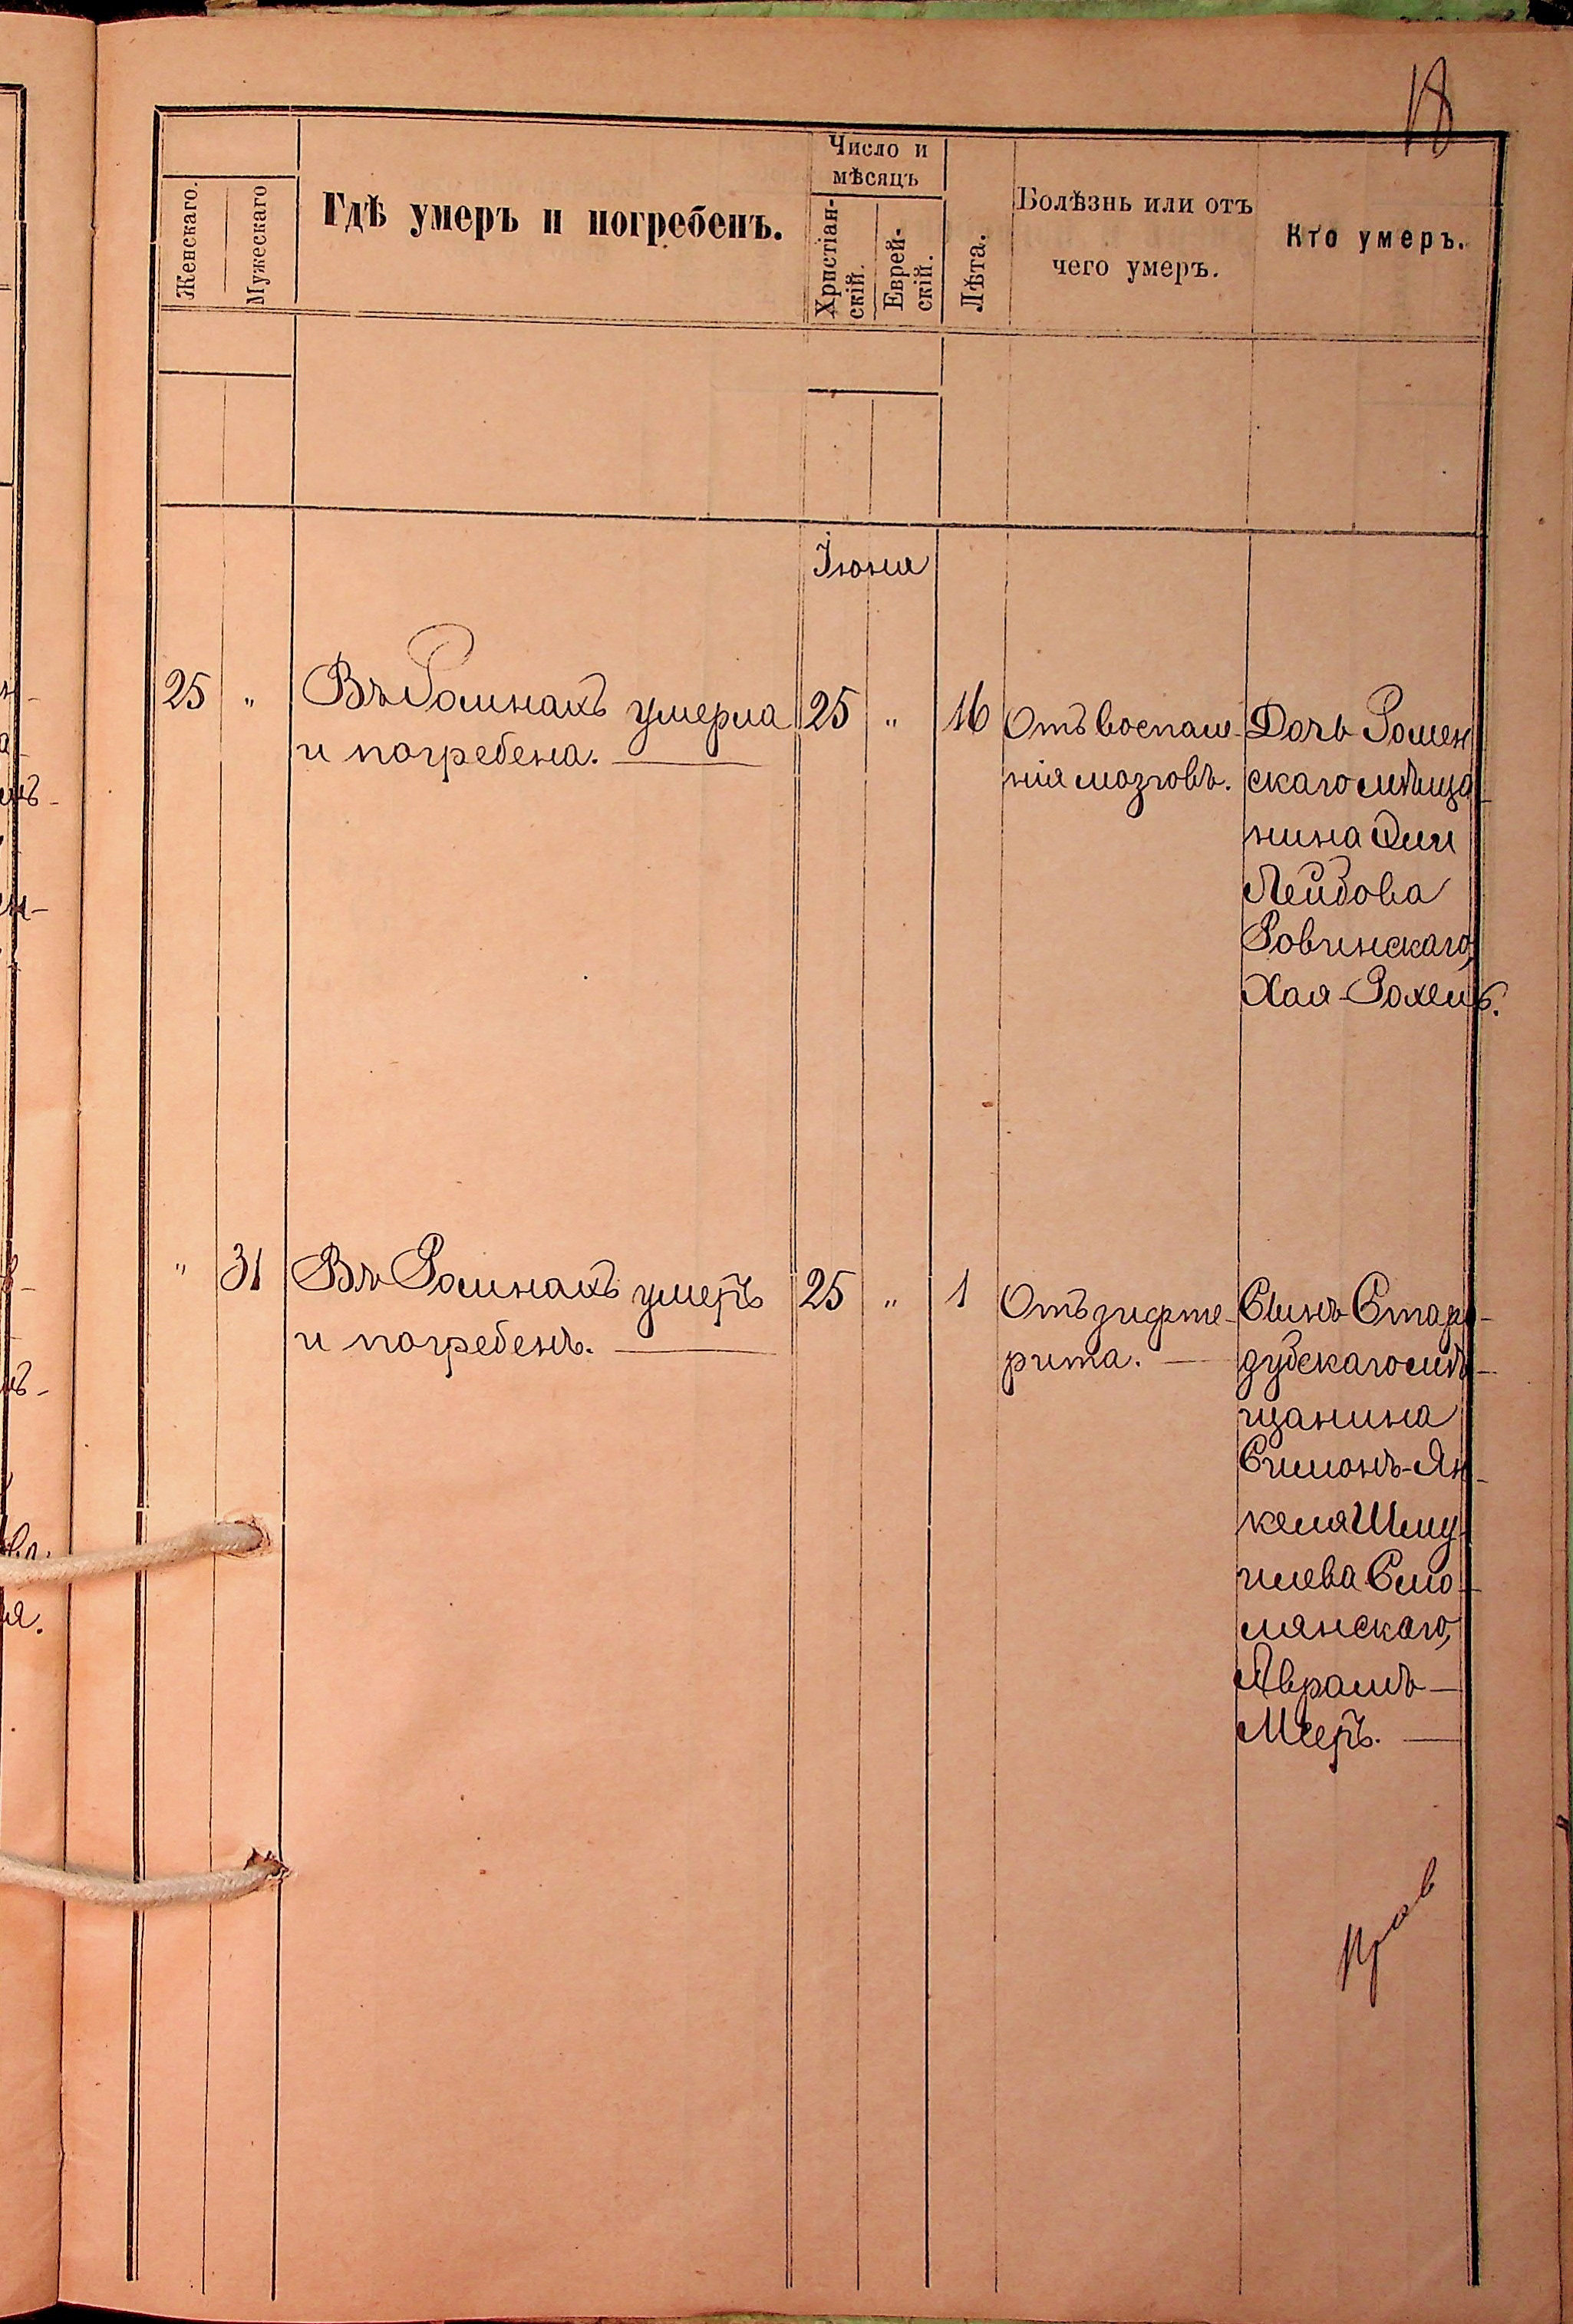 18
Женскаго.
Мужескаго
Гдѣ умеръ и погребенъ.
Число и
мѣсяцъ
Христіан-
скій.
Еврей-
скій.
Лѣта.
Болѣзнь или отъ
чего умеръ.
Кто умеръ.
Іюня
25 " Въ Ромнахъ умерла 25 " 16
и погребена.
Отъ воспале-
нія мозговъ.
Дочь Ромен
скаго мѣща-
нина
Лейбова
Ровинскаго,
Хая-Рохель.
" 31 Въ Ромнахъ умеръ 25 " 1
и погребенъ.
Отъ дифте-
рита.
Сынъ Старо-
дубскаго мѣ-
щанина
Симонъ-Ян-
келя Шму-
илева Смо-
лянскаго,
Аврамъ-
Мееръ.